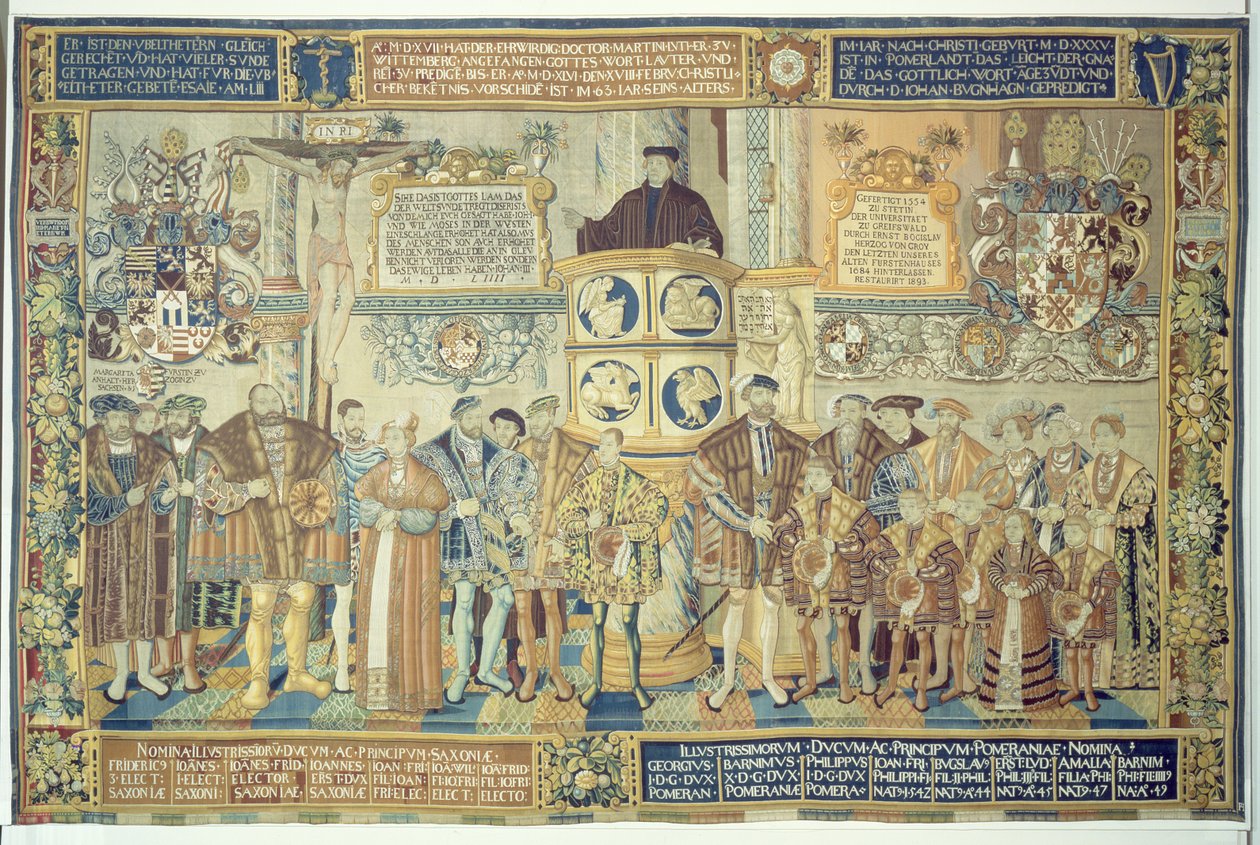 ER · IST · DEN · VBELTHETERN · GLEICH
GERECHET · VD · HAT · VIELER · SVNDE
GETRAGEN · VND · HAT · FVR · DIE · VB
ELTHETER · GEBETE · ESAIE · AM · LIII
A° · M · D · XVII · HAT · DER · EHRWIRDIG · DOCTOR · MARTIN · LVTHER · ZV
WITTEMBERG · ANGEFANGEN · GOTTES · WORT · LAVTER · VND
REI · ZV · PREDIGĒ · BIS · ER · A° · M · D · XLVI · DEN · XVIII · FEBRV · CHRISTLI
CHER · BEKĒTNIS · VORSCHIDĒ · IST · IM · 63 · IAR · SEINS · ALTERS ·
IM · IAR · NACH · CHRISTI · GEBVRT · M · D · XXXV ·
IST · IN · POMERLANDT · DAS · LEICHT · DER · GNA
DĒ · DAS · GOTTLICH · WORT · AGEZŪDT · VND
DVRCH · D · IOHAN · BVGNHAGN · GEPREDIGT ·
IN RI
SIHE DAS IST GOTTES LAM DAS
DER WELT SVNDE TREGT DISER IST S
VON DEM ICH EVCH GESAGT HABE · IOH · I
VND WIE MOSES IN DER WVSTEN
EINE SCHLANGE ERHOHET HAT ALSO MVS
DES MENSCHEN SON AVCH ERHOHET
WERDEN AVF DAS ALLE DIE AN IN GLEV
BEN NICHT VERLOREN WERDEN SONDERN
DAS EWIGE LEBEN HABEN · IOHAN · III
M · D · LIIII
GEFERTIGT 1554
ZU STETIN
DER UNIVERSITAET
ZU GREIFSWALD
DURCH ERNST BOGISLAV
HERZOG VON CROY
DEN LETZTEN UNSERES
ALTEN FURSTENHAUSES
1684 HINTERLASSEN.
RESTAURIRT 1893.
MARGARETA FVRSTEN ZV
ANHALT · HER ZOGN ZV
SACHSEN ·
NOMINA · ILLVSTRISSIORV̄ · DVCVM · AC · PRINCIPVM · SAXONIÆ ·
FRIDERIC9 IOĀNES · IOĀNES · FRID · IOANNES IOAN · FRI : IOĀ · WIL IOĀ · FRID ·
3 · ELECT : I · ELECT : ELECTOR ERST · DVX FIL : IOAN : FRI · OFRI FIL · IOFRI
SAXONIÆ SAXONI : SAXONIAE · SAXONIÆ FRI : ELEC : ELECT : ELECTO :
ILLVSTRISSIMORVM · DVCVM · AC · PRINCIPVM · POMERANIAE · NOMINA
GEORGIVS BARNIMVS PHILIPPVS PHILIPP9 BVGSLAV ERSTLVD AMALIA BARNIM
I · D · G · DVX X · D · G · DVX I · D · G · DVX PHILIPPI · FI FILI · PHIL · PHIL · FIL FILIA · PHI : PHI · FILI
POMERAN · POMERANIÆ POMERA · NAT9 · 1 · 5 · 42 NAT9 · A° · 44 NAT9 · A° · 45 NAT9 · 47 NA : A° · 49